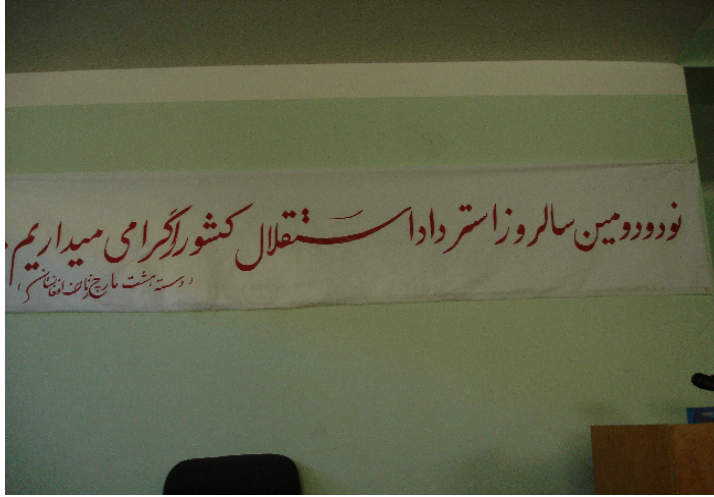 نودودومین سالروز استرداد استقلال کشور را گرامی میداریم.
(دسته هشت مارچ زنان افغانستان)